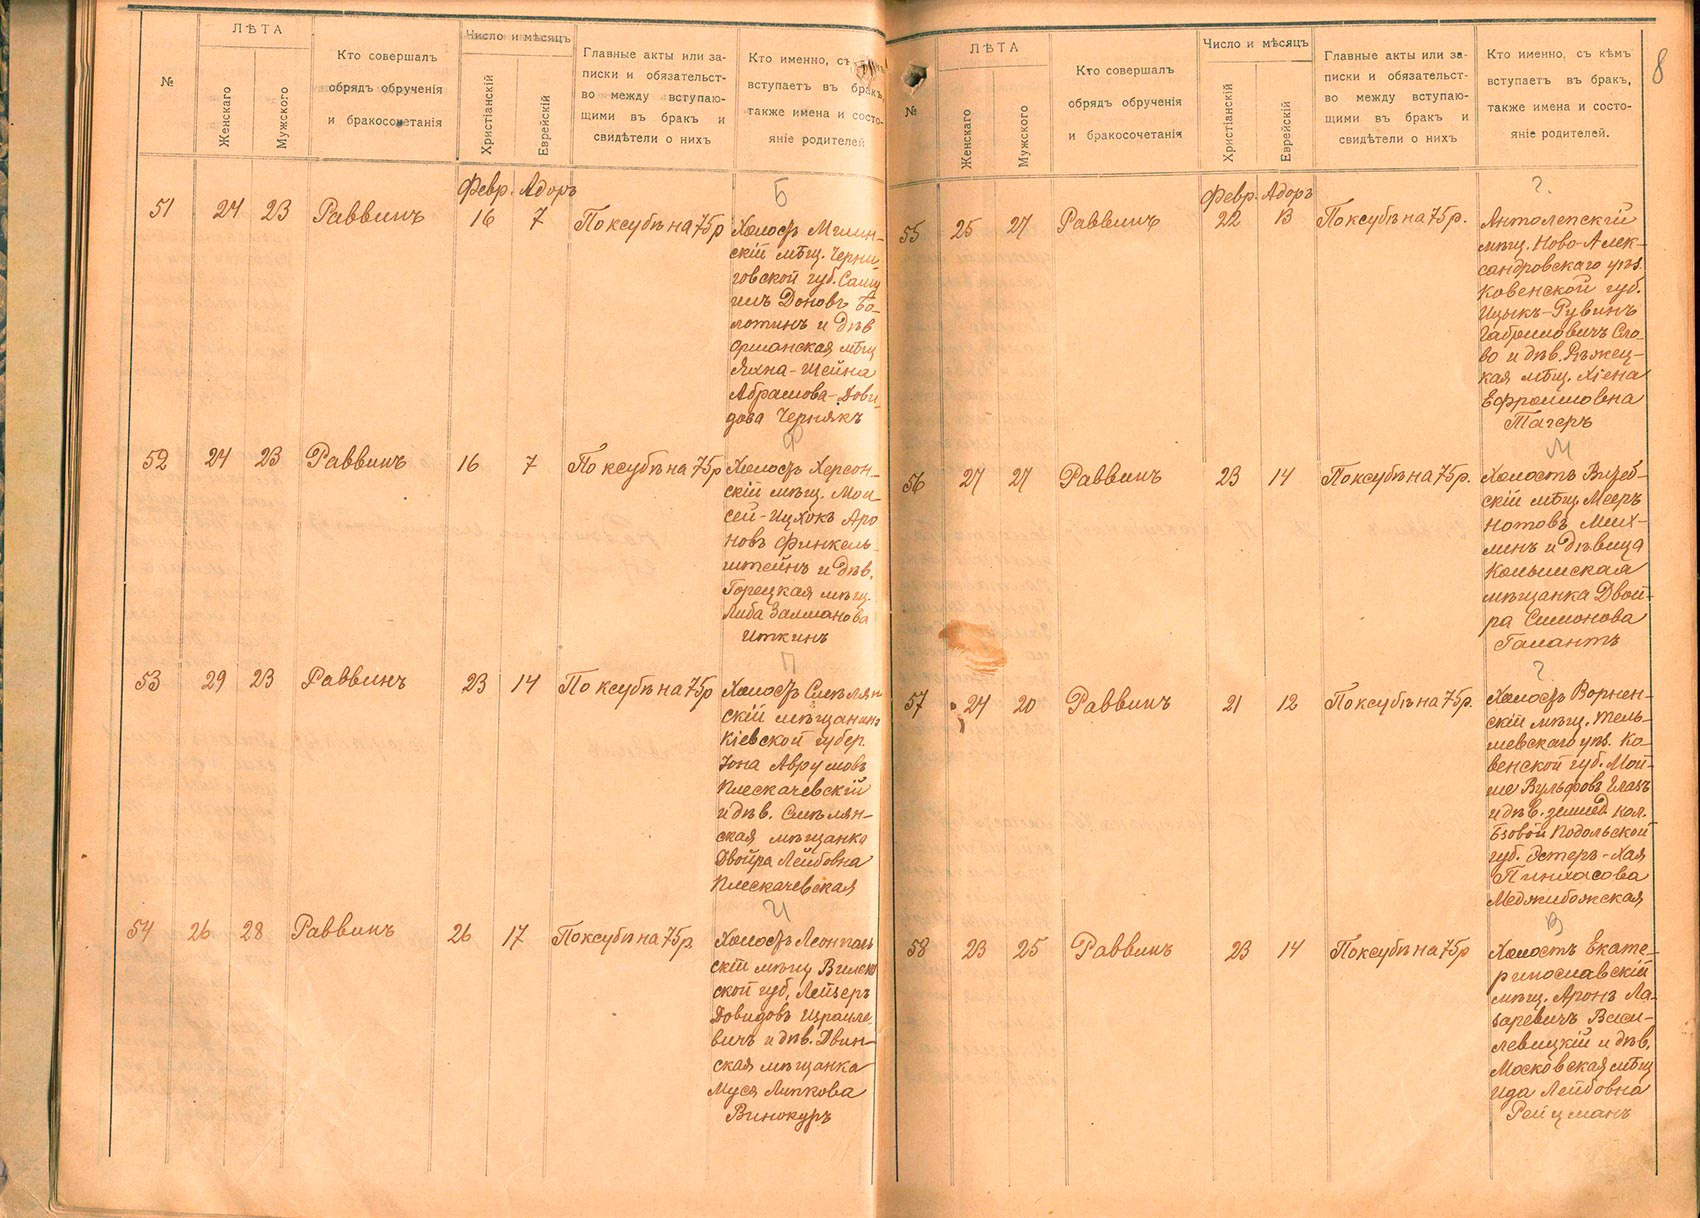 №
ЛѢТА
Женскаго
Мужского
Кто совершалъ
обрядъ обрученія
и бракосочетанія
Число и мѣсяцъ
Христіанскій
Еврейскій
Главные акты или за-
писки и обязательст-
во между вступаю-
щими въ бракъ и
свидѣтели о нихъ
Кто именно, съ
вступаетъ въ бракъ,
также имена и состо-
яніе родителей
Февр. Адоръ
Б
51 24 23 Раввинъ 16 7 По ксубѣ на 75 р
Холост Мглин-
скій мѣщ. Черни-
говской губ.
Доновъ Бо-
лотинъ и дѣв
Оршанская мѣщ
Яхна-Шейна
Абрамова-Дови-
дова Чернякъ
Ф
52 24 23 Раввинъ 16 7 По ксубѣ на 75 р
Холост Херсон-
скій мѣщ. Мои-
сей-Ицхокъ Аро
новъ Финкель-
штейнъ и дѣв.
Горецкая мѣщ.
Либа Залманова
Иткинъ
П
53 29 23 Раввинъ 23 14 По ксубѣ на 75 р
Холост Смѣлян-
скій мѣщанинъ
Кіевской губер.
Іона Аврумовъ
Плескачевскій
и дѣв. Смѣлян-
ская мѣщанка
Двойра Лейбовна
Плескачевская
И
54 26 28 Раввинъ 26 17 По ксубѣ на 75 р.
Холост
скій мѣщ Вилен
ской губ. Лейзеръ
Довидовъ Израиле-
вичъ и дѣв. Двин-
ская мѣщанка
Муся Липкова
Винокуръ
8
№
ЛѢТА
Женскаго
Мужского
Кто совершалъ
обрядъ обрученія
и бракосочетанія
Число и мѣсяцъ
Христіанскій
Еврейскій
Главные акты или за-
писки и обязательст-
во между вступаю-
щими въ бракъ и
свидѣтели о нихъ
Кто именно, съ кѣмъ
вступаетъ въ бракъ,
также имена и состо-
яніе родителей.
Февр. Адоръ
55 25 27 Раввинъ 22 13 По ксубѣ на 75 р.
Антолепскій
мѣщ. Ново-Алек-
сандровскаго уѣз.
Ковенской губ.
Ицыкъ-Рувинъ
Габриловичъ Сло-
во и дѣв. Рѣжец-
кая мѣщ. Хіена
Ефроимовна
Тагеръ
М
56 27 27 Раввинъ 23 14 По ксубѣ на 75 р.
Холостъ Витеб-
скій мѣщ Мееръ
Нотовъ Мих-
линъ и дѣвица
Копысская
мѣщанка Двой-
ра Симонова
Галантъ
57 24 20 Раввинъ 21 12 По ксубѣ на 75 р.
Холост Ворнен-
скій мѣщ. Тель-
шевскаго уѣз. Ко-
венской губ. Мой-
ше Вульфовъ Глазъ
и дѣв. землед. кол.
Подольской
губ. Эстеръ-Хая
Пинхасова
Меджибожская
В
58 23 25 Раввинъ 23 14 По ксубѣ на 75 р
Холостъ Екате-
ринославскій
мѣщ. Аронъ Ла-
заревичъ Васи-
левицкій и дѣв.
Московская мѣщ
Ида Лейбовна
Рейцманъ